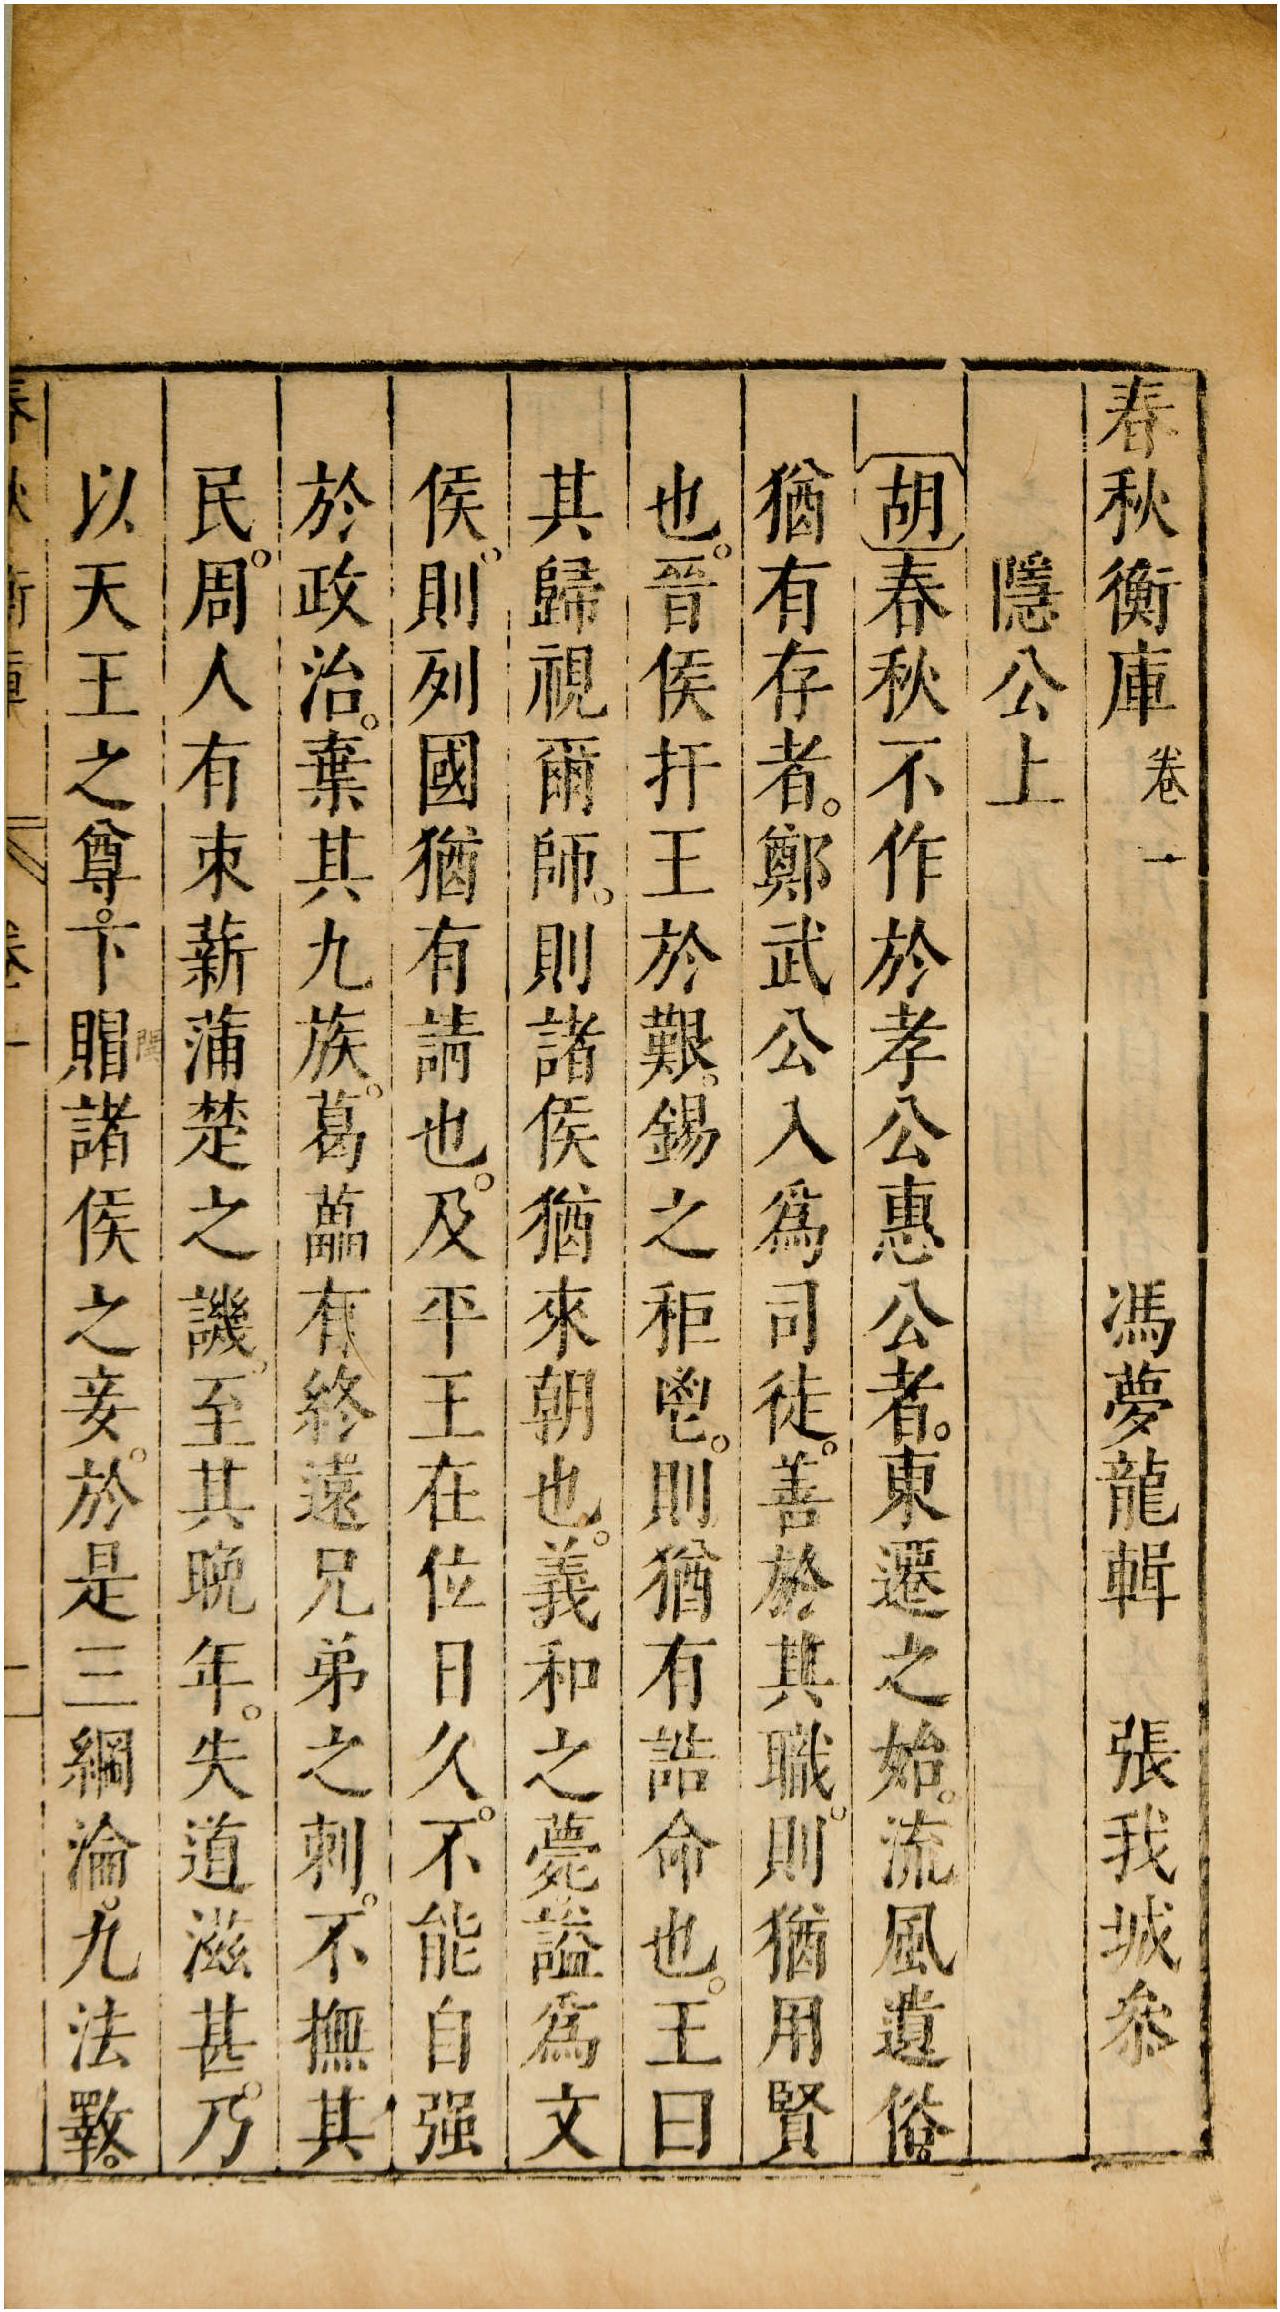 春秋衡庫卷一 馮夢龍輯 張我城參
隱公上
胡春秋不作於孝公惠公者。東遷之始。流風遺俗。
猶有存者。鄭武公入爲司徒。善於其職。則猶用賢
也。晉侯扞王於艱。錫之秬鬯。則猶有誥命也。王曰
其歸視爾師。則諸侯猶來朝也。義和之薨謚爲文
侯。則列國猶有請也。及平王在位日久。不能自强
於政治。棄其九族。葛藟有終遠兄弟之刺。不撫其
民。周人有束薪蒲楚之譏。至其晚年。失道滋甚。乃
以天王之尊。下賵諸侯之妾。於是三綱淪。九法斁。
春秋衡庫 卷一